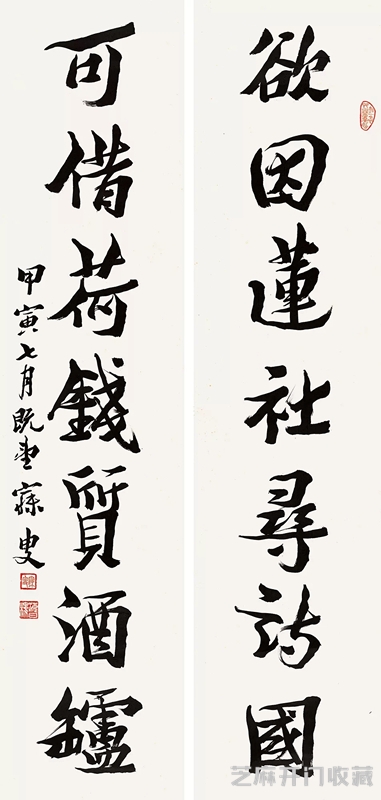 欲因蓮社尋詩國
可借荷錢質酒罏
甲寅七月既望寐叟
芝麻开门收藏